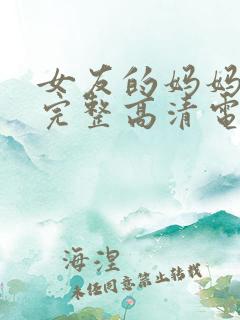 女友的妈妈
完整高清电
海涅
未经同意禁止转载